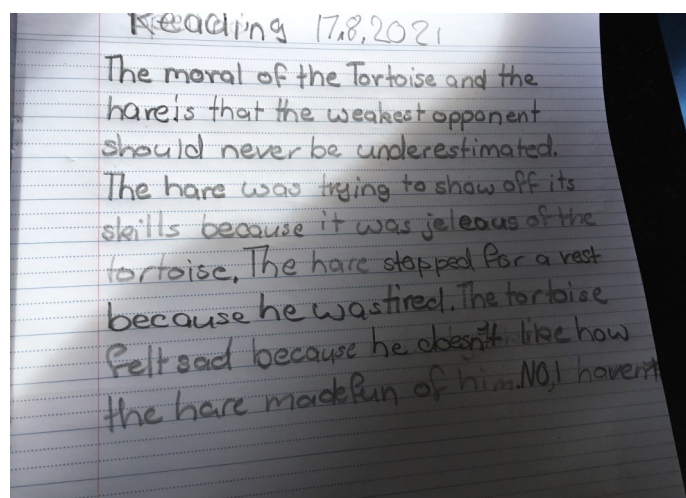 Reading 17.8.2021
The moral of the Tortoise and the
hare is that the weakest opponent
should never be underestimated.
The hare was trying to show off its
skills because it was jeleaus of the
tortoise. The hare stopped for a rest
because he was tired. The tortoise
felt sad because he doesn't like how
the hare made fun of him. NO, I haven't